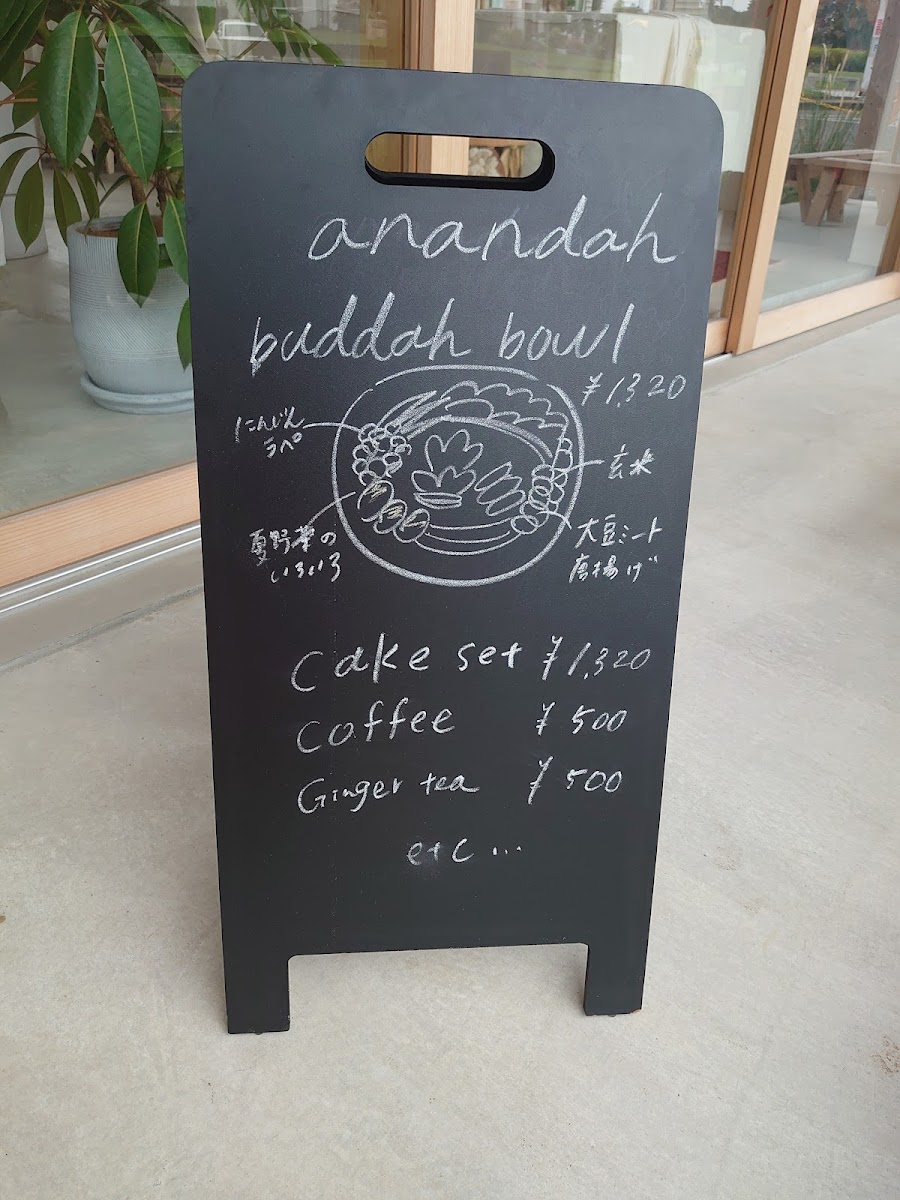 anandah
buddah bowl
¥1,320
にんじん
ラペ
玄米
夏野菜の
いろいろ
大豆ミート
唐揚げ
Cake set ¥1,320
Coffee ¥500
Ginger tea ¥500
etc...